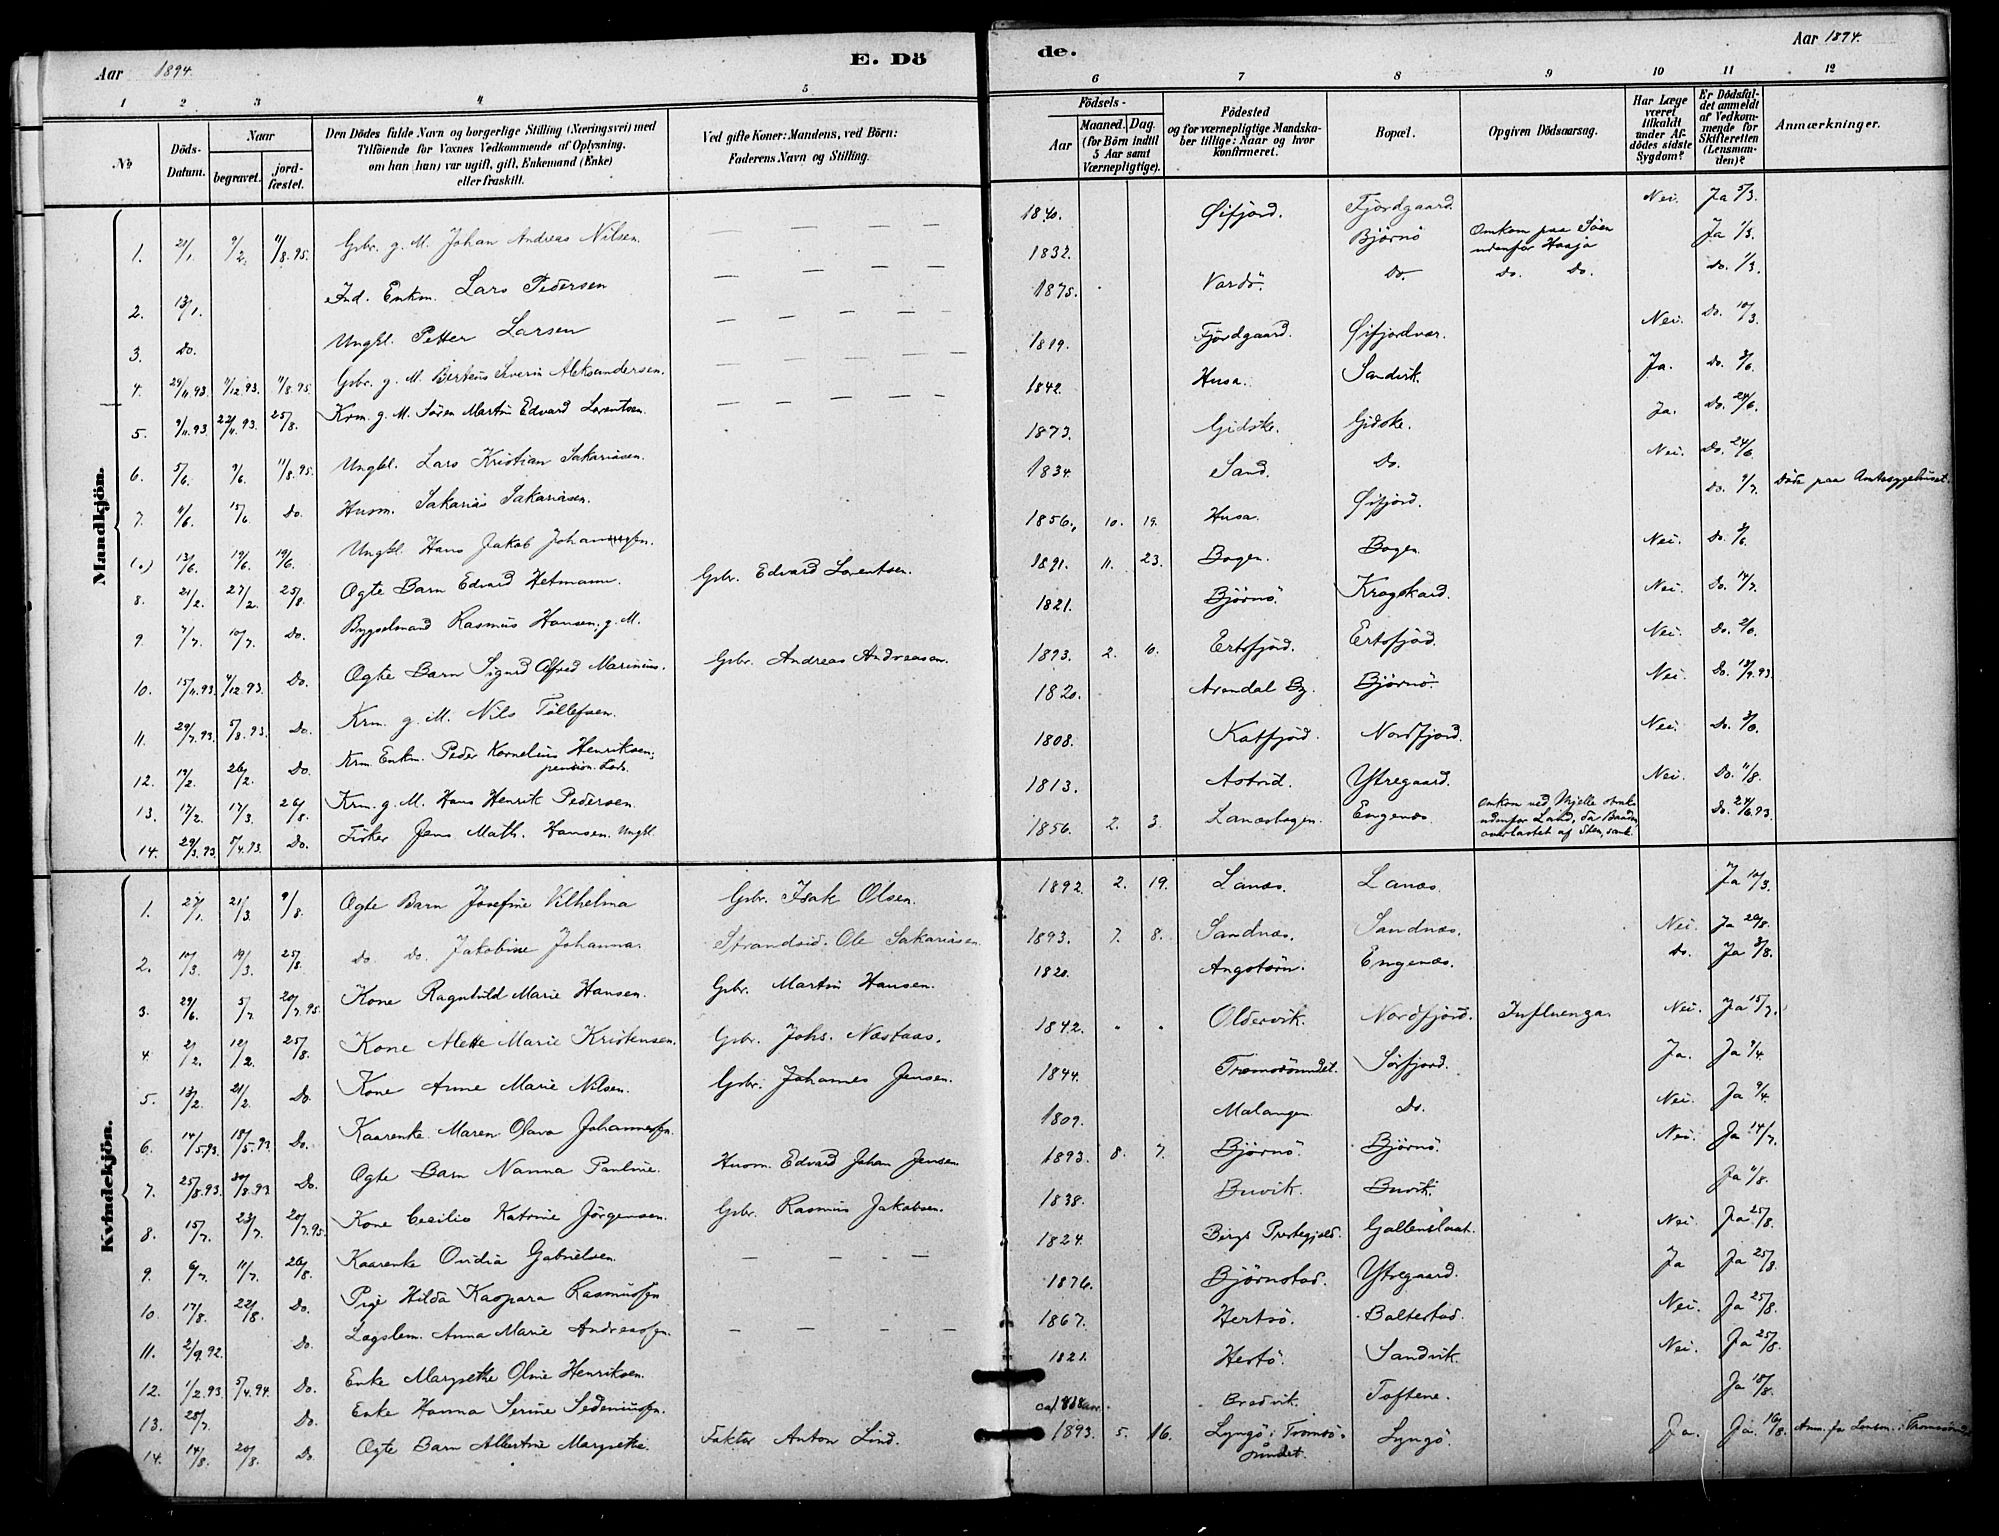 Aar 1894.
E. Dö
de.
Aar 1894.
1 2 3 4 5 6 7 8 9 10 11 12
No
Döds-Datum.
Naar
begravet.
jord-fæstet.
Den Dödes fulde Navn og borgerlige Stilling (Næringsvei) med
Tilföiende for Voxnes Vedkommende af Oplysning,
om han (hun) var ugift, gift, Enkemand (Enke)
eller fraskilt.
Ved gifte Koner: Mandens, ved Börn:
Faderens Navn og Stilling.
Födsels-
Aar
Maaned. Dag.
(for Börn indtil
5 Aar samt
Værnepligtige).
Födested
og for værnepligtige Mandska-
ber tillige: Naar og hvor
konfirmeret.
Bopæl.
Opgiven Dödsaarsag.
Har Læge
været
tilkaldt
under Af-
dödes sidste
Sygdom?
Er Dödsfal-
det anmeldt
af Vedkom-
mende for
Skifteretten
(Lensman-
den)?
Anmærkninger.
Mandkjön.
1. 21/1. 9/2. 11/8.95. Gbr. g. M. Johan Andreas Nilsen. — — — — 1840. Øifjord. Fjordgaard. Nei. Ja 5/3.
2. 13/1. Ind. Enkm. Lars Pedersen — — — — 1832. Bjørnø Omkom paa Søen udenfor Haaja Ja 1/3.
3. Do. Ungkl. Petter Larsen — — — — 1875. Vardö. Do. Do. Do. Do. 1/3.
4. 24/11.93. 7/12.93. 11/8.95. Gbr. g. M. Berteus Severin Aleksandersen. — — — — 1819. Fjordgaard. Øifjordvær. Nei. Do. 10/3.
5. 9/11.93. 22/11.93. 25/8. Krm. g. M. Sören Martin Edvard Lorentsen. — — — — 1842. Husa. Sandvik. Ja. Do. 3/6.
6. 5/6. 9/6. 11/8.95. Ungkl. Lars Kristian Sakariasen. 1873. Gidske. Gidske. Ja. Do. 24/6.
7. 9/6. 15/6. Do. Husm. Sakarias Sakariasen. 1834. Sand. Do. Nei. Do. 24/6.
13/6. 19/6. 19/6. Ungkl. Hans Jakob Johannesen. 1856. 10. 19. Husa. Øifjord. Do. 9/7. Döde paa Amtssygehuset.
8. 21/2. 27/2. 25/8. Ogte Barn Edvard Hetmann. Gbr. Edvard Lorentsen. 1891. 11. 23. Bogen. Bogen. Nei. Do. 3/6.
9. 7/7. 10/7. Do. Bygselmand Rasmus Hansen. g. M. 1821. Bjørnø. Krogskard. Nei. Do. 14/7.
10. 15/11.93. 4/12.93. Do. Ogte Barn Sigurd Alfred Marinius. Gbr. Andreas Andreasen. 1893. 2. 10. Ertsfjord. Ertsfjord. Nei. Do. 2/6.
11. 29/7.93. 5/8.93. Do. Krm. g. M. Nils Töllefsen. 1820. Arendal By. Bjørnø. Nei. Do. 13/9.93.
12. 19/2. 26/2. Do. Krm. Enkm. Peder Kornelius Henriksen, pension. Lods. 1808. Katfjord. Nordfjord. Nei. Do. 3/6.
13. 12/2. 17/3. 26/8. Krm. g. M. Hans Henrik Pedersen. 1813. Astrid. Ytregaard. Nei. Do. 11/8.
14. 29/3.93. 7/4.93. Do. Fisker Jens Math. Hansen. Ungkl. 1856. 2. 3. Lanesbogen. Engenes. Omkom ved Mjelle udenfor Land, da Baaden overlastet af Sten, sank. Do. 24/6.93.
Kvindekjön.
1. 27/1. 21/3. 9/8. Ogte Barn Josefine Vilhelma Gbr. Isak Olsen. 1892. 2. 19. Lanes. Lanes. Ja 10/3.
2. 10/3. 19/3. 25/8. Do. Do. Jakobine Johanna. Strandsid. Ole Sakariasen. 1893. 7. 8. Sandnæs. Sandnæs. Nei. Ja 20/8.
3. 29/6. 5/7. 20/7.95. Kone Ragnhild Marie Hansen. Gbr. Martin Hansen. 1820. Angstørn. Engenæs. Do. Ja 3/8.
4. 2/2. 12/2. 25/8. Kone Alette Marie Kristensen. Gbr. Johs. Næstaas. 1842. " " Oldervik. Nordfjord. Influenza. Nei. Ja 15/7.
5. 13/2. 21/2. Do. Kone Anne Marie Nilsen. Gbr. Johannes Jensen. 1844. Tromsösundet. Sörfjord. Ja. Ja 9/4.
6. 14/5.93. 18/5.93. Do. Kaarenke Maren Olava Johannesen. 1809. Malangen Do. Nei. Ja 9/4.
7. 25/8.93. 30/8.93. Do. Ogte Barn Nanna Pauline. Husm. Edvard Johan Jensen 1893. 8. 7. Bjørnø. Bjørnø. Nei. Ja 14/7.
8. 15/7. 23/7. 20/7.95. Kone Cecilie Katrine Jörgensen. Gbr. Rasmus Jakobsen. 1838. Buvik. Buvik. Ja 4/8.
9. 6/7. 11/7. 26/8. Kaarenke Ovidia Gabrielsen. — — — — 1824. Bergs Prestegjeld. Gallenslaat. Nei. Ja 25/8.
10. 17/8. 22/8. Do. Pige Hilda Kaspara Rasmussen 1876. Bjørnstad. Ytregaard. Ja Ja 25/8.
11. 2/9.92. Do. Lægslem. Anna Marie Andreassen. — — — — 1867. Hertsö. Baltestad. Nei. Ja 25/8.
12. 1/2.93. 5/4.94. Do. Enke Margrethe Oline Henriksen. 1821. Hertö. Sandvik. Nei. Ja 25/8.
13. 25/7. Do. Enke Hanna Serine Sedeniussen. ca. 1818 Bredvik. Toftene. Ja 18/8.
14. 14/8. 20/8. Do. Ogte Barn Albertine Margrethe. Faktor Anton Lind. 1893. 5. 16. Lyngö i Tromsösundet. Lyngö. Ja. Ja. 16/8. Anm. for Lensm. i Tromsösundet